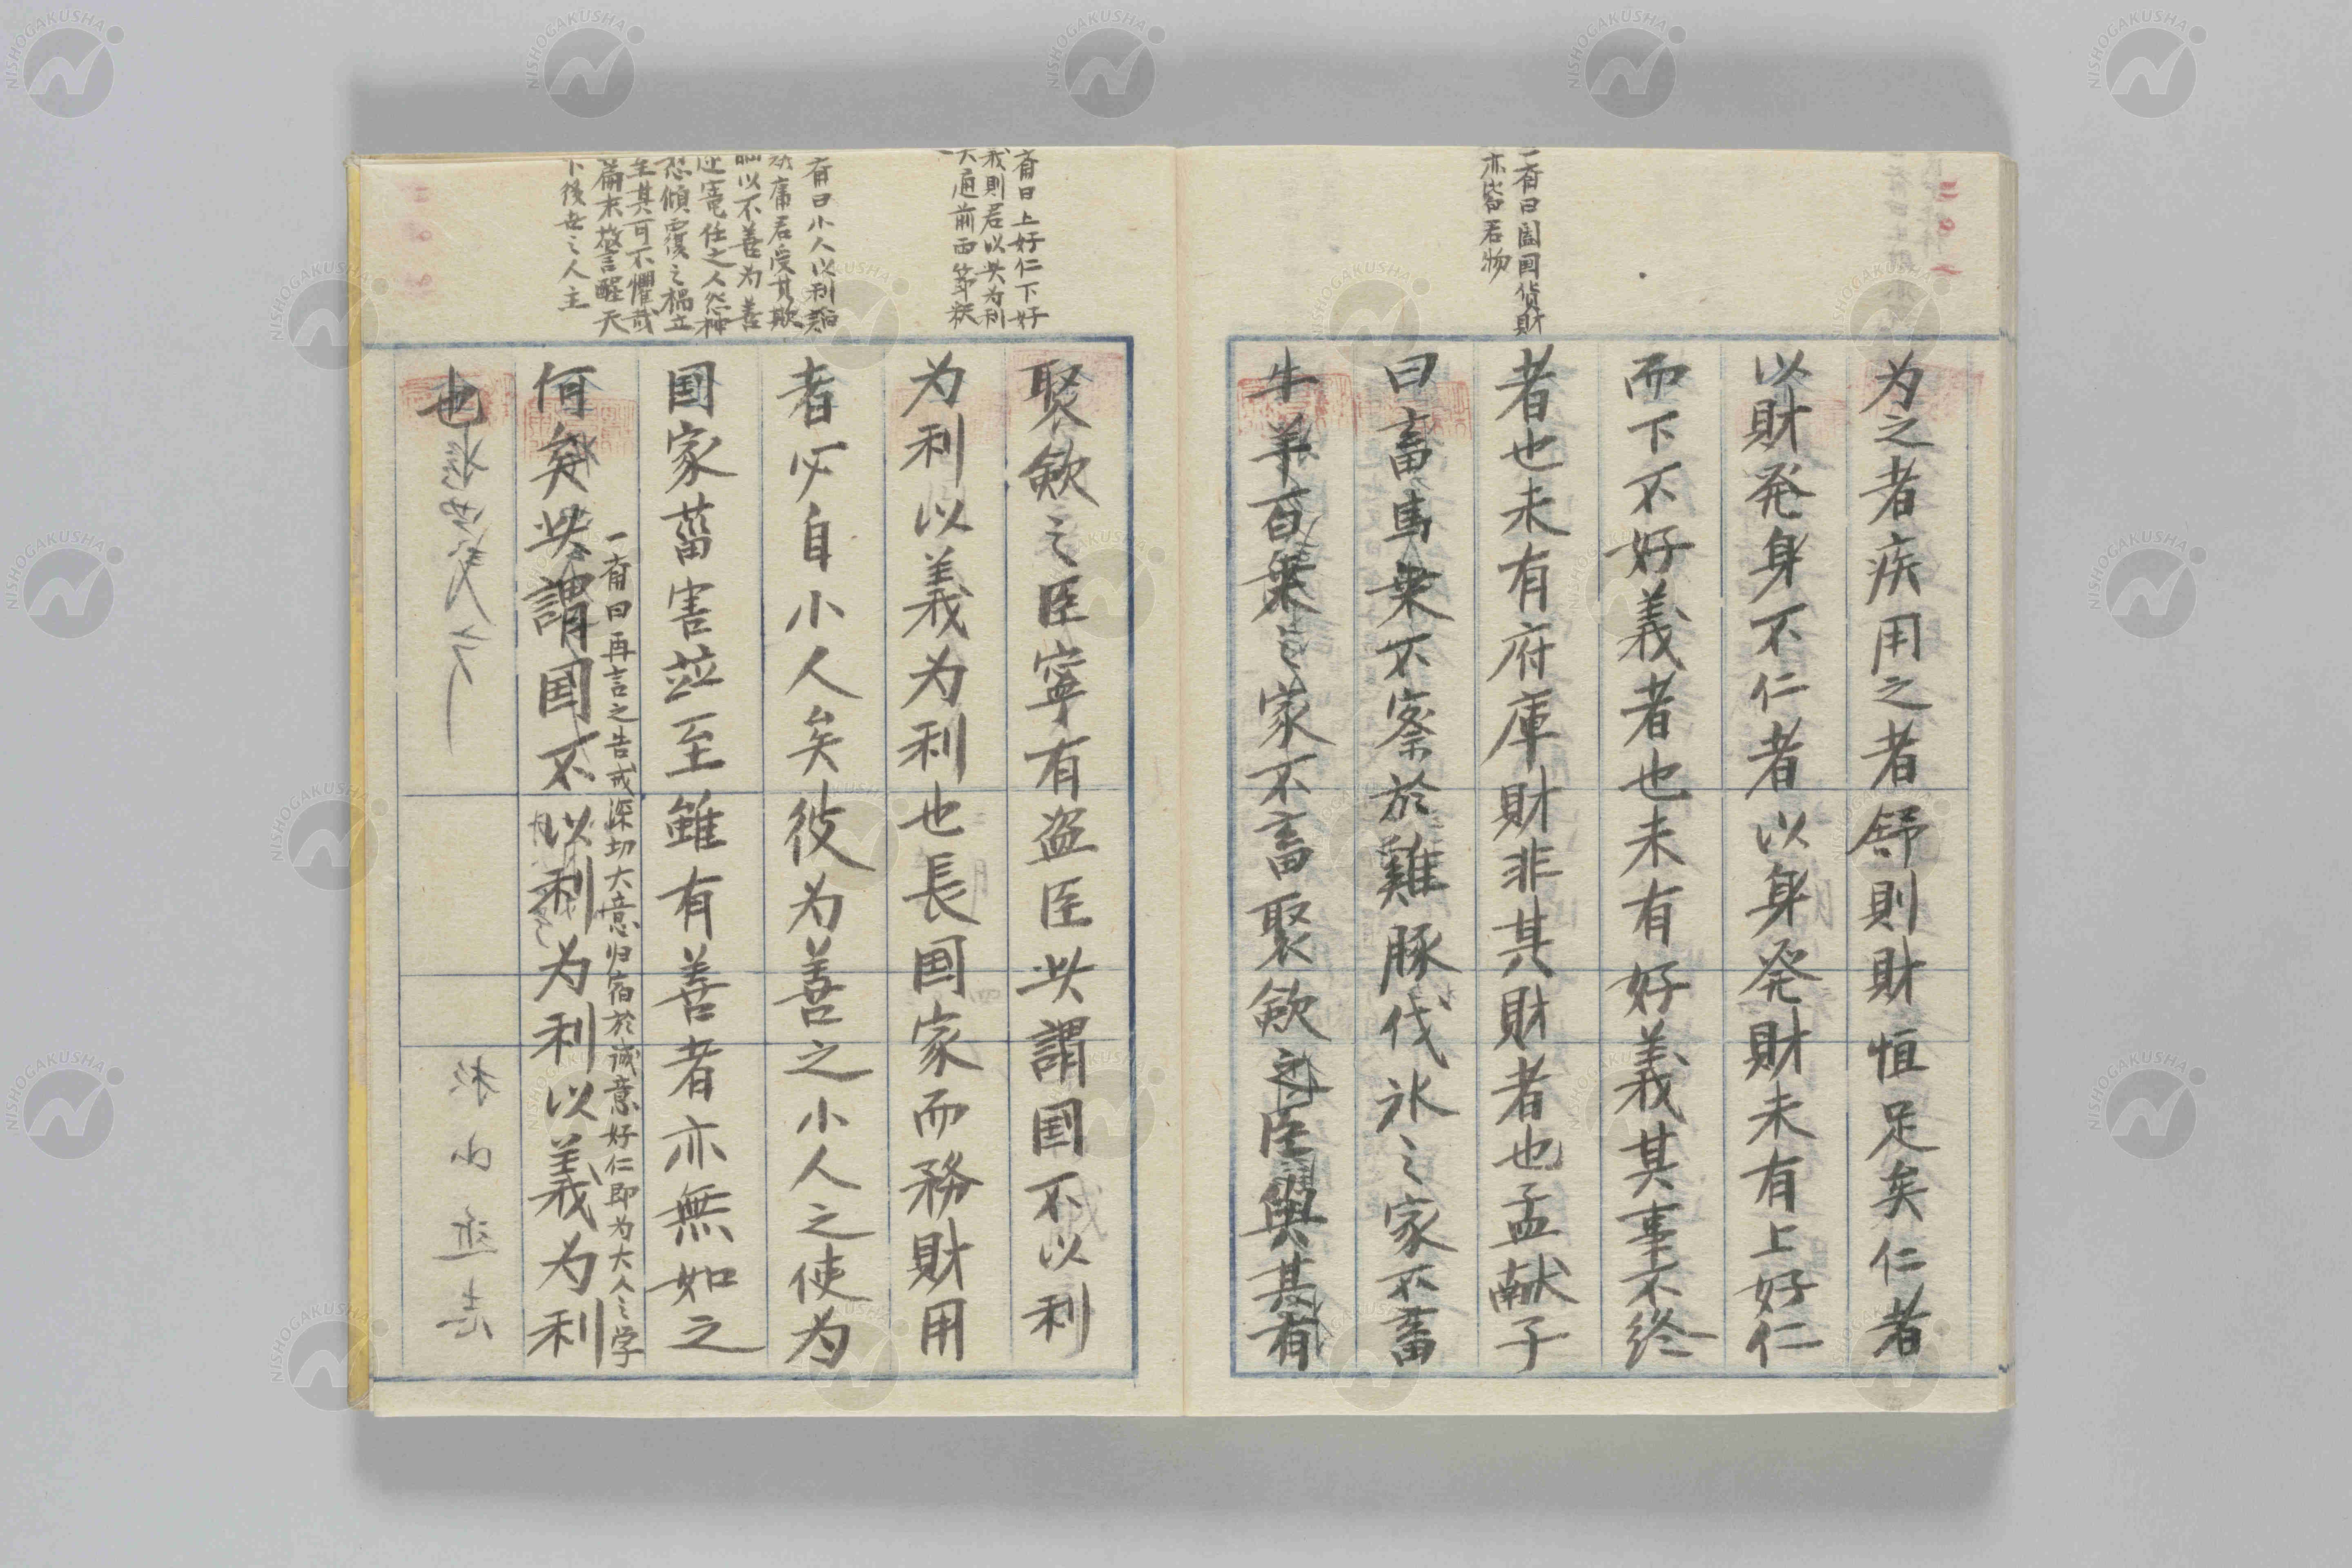 一斎曰国国貨財
亦皆君物
为之者疾用之者舒則財恒足矣仁者
以財発身不仁者以身発財未有上好仁
而下不好義者也未有好義其事不终
者也未有府庫財非其財者也孟献子
曰畜馬乗不察於雞豚伐氷之家不畜
牛羊百乗之家不畜聚歛之臣與其有
斎曰上好仁下好
義則君以此为利
大通前面第秩
斎曰小人以利
庸君受其欺
以不善为善
寵任之人怨神
傾覆之禍立
至其可不懼哉
篇末警醒天
下後世之人主
聚歛之臣寧有盗臣此謂国不以利
为利以義为利也長国家而務財用
者必自小人矣彼为善之小人之使为
国家菑害並至雖有善者亦無如之
一斎曰再言之告戒深切大意归宿於诚意好仁即为大人之学
何矣此謂国不以利为利以義为利
也